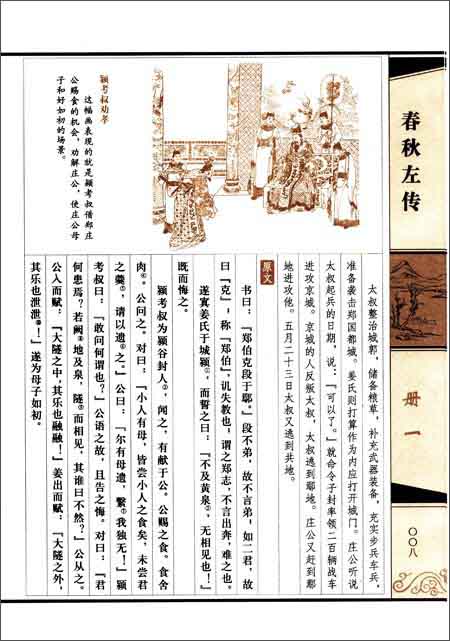 春秋左传
册一
〇〇八
太叔整治城郭，储备粮草，补充武器装备，充实步兵车兵，
准备袭击郑国都城。姜氏则打算作为内应打开城门。庄公听说
太叔起兵的日期，说：“可以了。”就命令子封率领二百辆战车
进攻京城。京城的人反叛太叔，太叔逃到鄢地。庄公又赶到鄢
地进攻他。五月二十三日太叔又逃到共地。
原文
书曰：“郑伯克段于鄢。”段不弟，故不言弟，如二君，故
曰“克”，称“郑伯”，讥失教也；谓之郑志，不言出奔，难之也。
遂寘姜氏于城颍，而誓之曰：“不及黄泉，无相见也！”
既而悔之。
颍考叔为颍谷封人，闻之，有献于公。公赐之食。食舍
肉。公问之。对曰：“小人有母，皆尝小人之食矣，未尝君
之羹，请以遗之。”公曰：“尔有母遗，繄我独无！”颍
考叔曰：“敢问何谓也？”公语之故，且告之悔。对曰：“君
何患焉？若阙地及泉，隧而相见，其谁曰不然？”公从之。
公入而赋：“大隧之中，其乐也融融！”姜出而赋：“大隧之外，
其乐也泄泄！”遂为母子如初。
颍考叔劝孝
这幅画表现的就是颍考叔借郑庄
公赐食的机会，劝解庄公，使庄公母
子和好如初的场景。